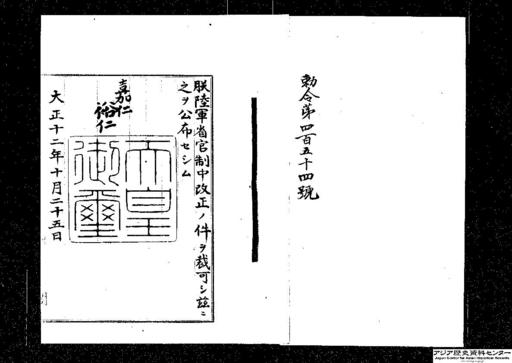 勅令第四百五十四號
朕陸軍省官制中改正ノ件ヲ裁可シ茲ニ
之ヲ公布セシム
嘉仁
裕仁
天皇
御璽
大正十二年十月二十五日
アジア歴史資料センター
Japan Center for Asian Historical Records